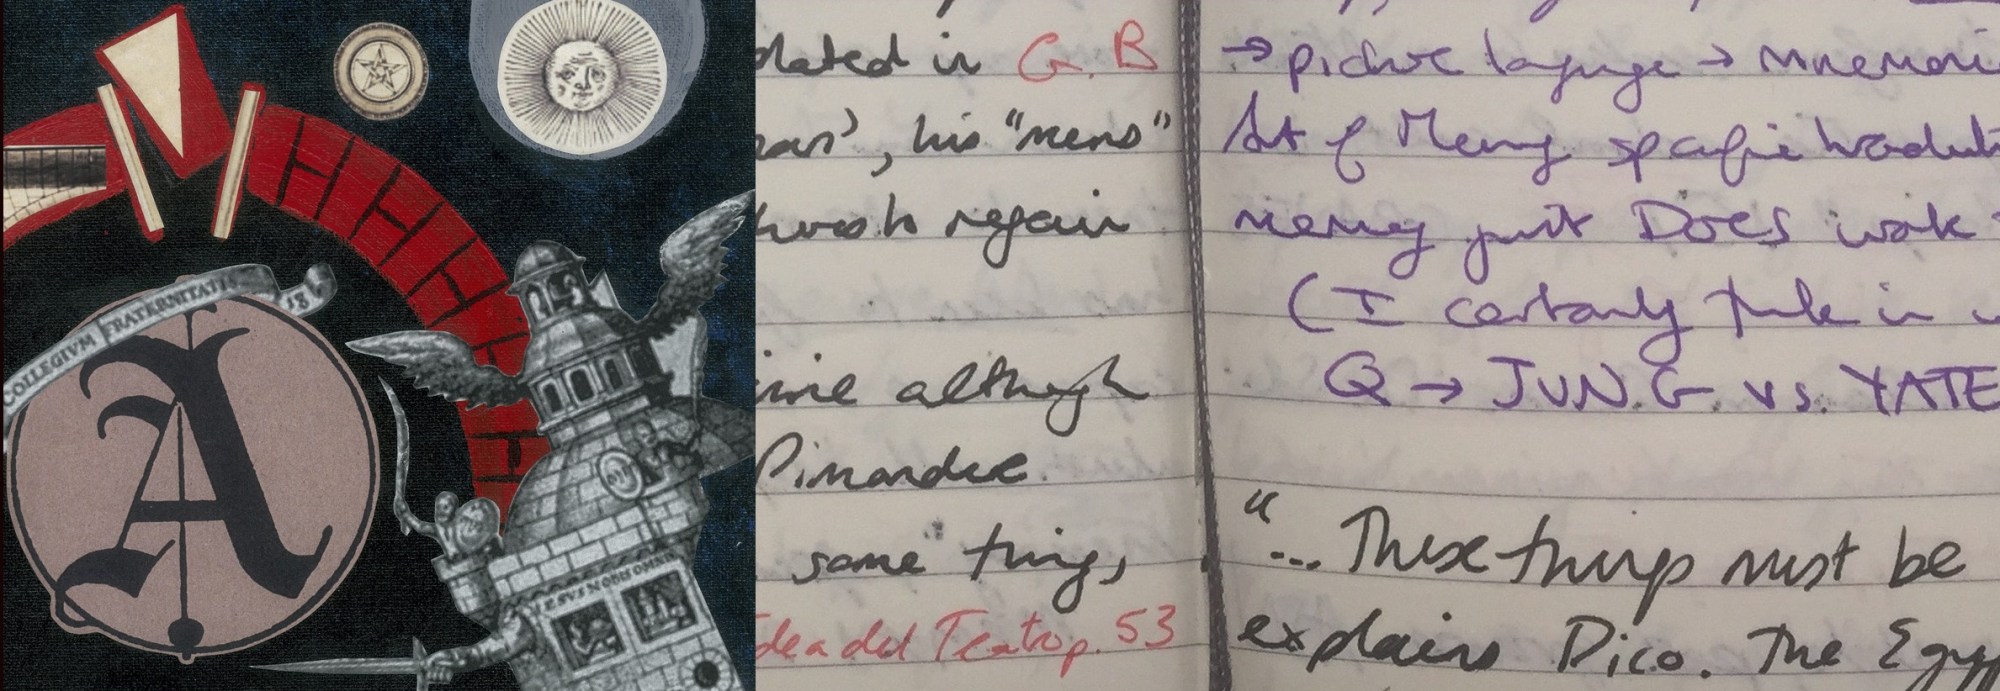 COLLEGIVM FRATERNITATIS
A
IESVS NOBIS OMNIA
lated in G.B
, his "mens"
regain
although
Pimandre
same things
Idea del Teatro p. 53
→ picture language → mnemoni
Art of Memory specific
memory just DOES work
(I certainly think in
Q → JUNG vs. YATE
"... These things must be
explains Pico. The Egyp